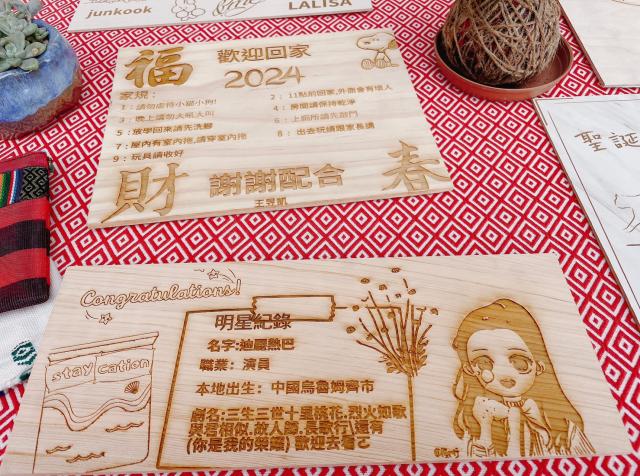 junkook
LALISA
福
歡迎回家
2024
家規:
1:請勿虐待小貓小狗!
2:11點前回家,外面會有壞人
3:晚上請勿大吼大叫
4:房間請保持乾淨
5:放學回來請先洗腳
6:上廁所請先敲門
7:屋內有室內拖,請穿室內拖
8:出去玩請跟家長講
9:玩具請收好
財
謝謝配合
春
王昱凱
聖誕
Congratulations!
stay cation
明星紀錄
名字:迪麗熱巴
職業:演員
本地出生:中國烏魯姆齊市
劇名:三生三世十里桃花,烈火如歌
與君相似,故人歸,長歌行,還有
(你是我的榮耀)歡迎去看ㄛ